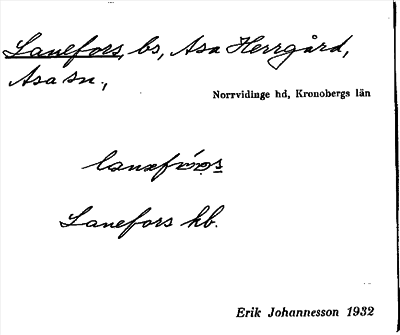 Lanefors, bs, Asa Herrgård,
Asa sn.,
Norrvidinge hd, Kronobergs län
Lanefors kb.
Erik Johannesson 1932